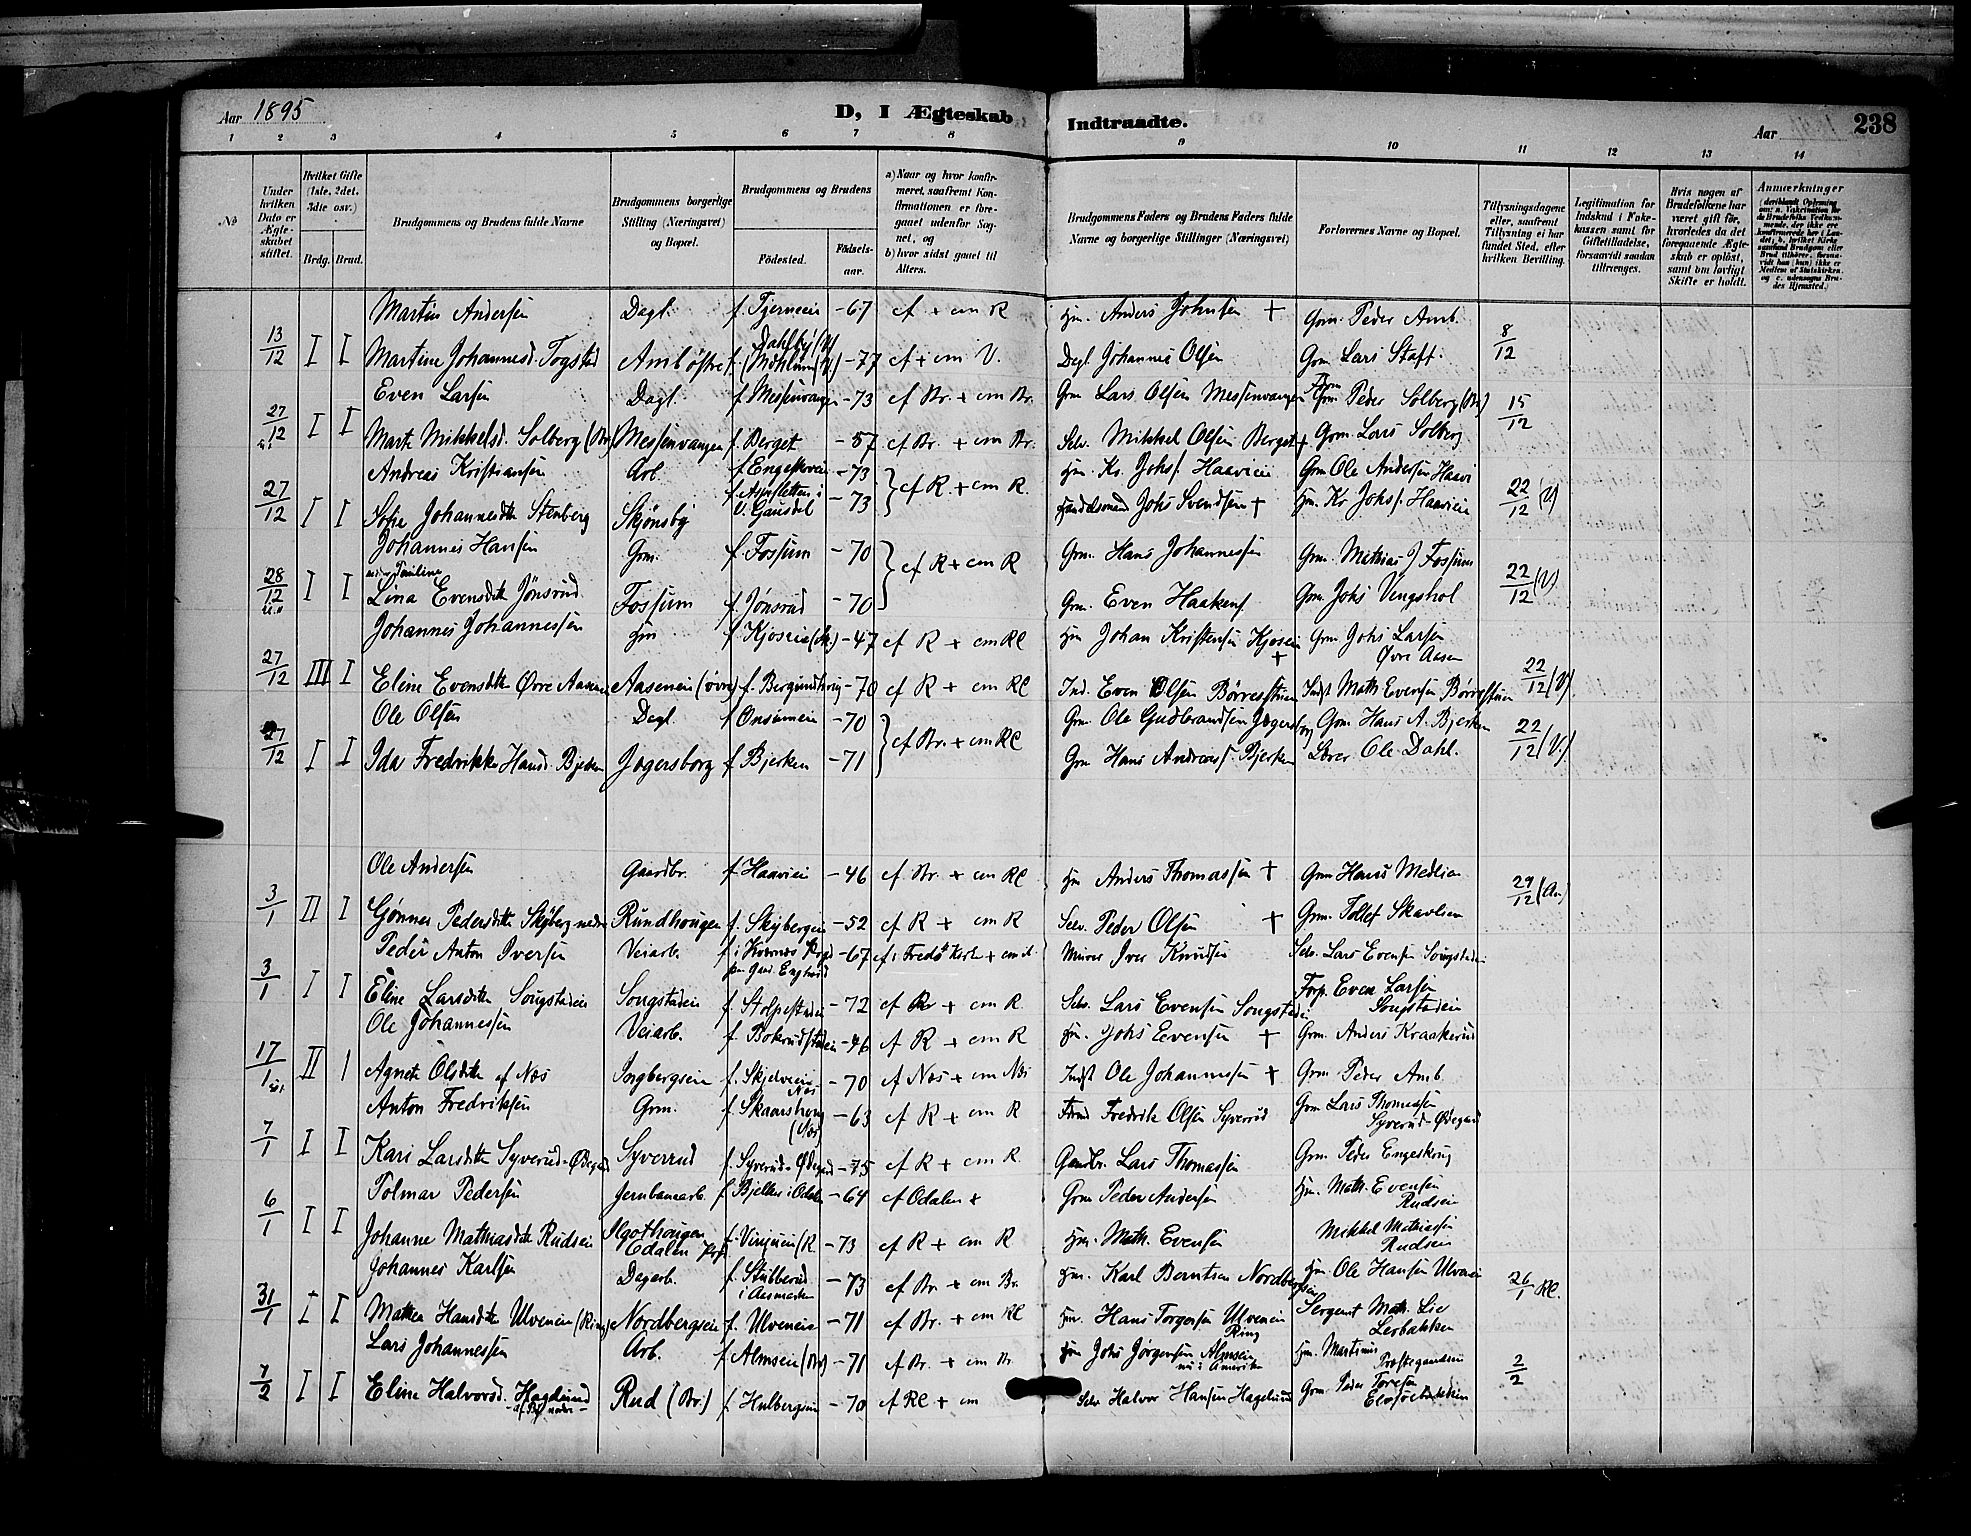 Aar 1895
D, I Ægteskab
Indtraadte.
Aar
238
1 2 3 4 5 6 7 8 9 10 11 12 13 14
№
Under hvilken Dato er Ægteskabet stiftet.
Hvilket Gifte (1ste, 2det, 3die osv.)
Brdg. Brud.
Brudgommens og Brudens fulde Navne
Brudgommens borgerlige Stilling (Næringsvei) og Bopæl.
Brudgommens og Brudens
Fødested.
Fødselsaar.
a) Naar og hvor konfirmeret, saafremt Konfirmationen er foregaaet udenfor Sognet, og
b) hvor sidst gaaet til Alters.
Brudgommens Faders og Brudens Faders fulde Navne og borgerlige Stillinger (Næringsvei)
Forlovernes Navne og Bopæl.
Tillysningsdagene eller, saafremt Tillysning ei har fundet Sted, efter hvilken Bevilling.
Legitimation for Indskud i Enkekassen samt for Giftetilladelse, forsaavidt saadan tiltrænges.
Hvis nogen af Brudefolkene har været gift før, hvorledes da det foregaaende Ægteskab er opløst, samt om lovligt Skifte er holdt.
Anmærkninger
Martin Andersen Dagl. f. Tjerneie -67 cf + cm R Hm. Anders Johnsen + Grm. Peder Amb.
13/12 I I Martine Johannesd. Togstad Amb østre f. -77 cf + cm V. Dagl. Johannes Olsen Grm. Lars Staff. 8/12
Even Larsen Dagl. f. Messenvangen -73 cf Br. + cm Br. Grm. Lars Olsen Messenvangen Grm Peder Solberg (Br)
27/12 I I Marte Mikkelsd. Solberg (Br) Messenvangen f. Berget -57 cf Br. + cm Br. Selv. Mikkel Olsen Berget + Grm. Lars Solberg 15/12
Andreas Kristiansen Arb. -73 cf R. + cm R. Hm. Kr. Johs. Haavieie Grm Ole Andersen Haavi
27/12 I I Sofie Johannesdtr Stenberg Skjønsby f. Aspesletten i V. Gausdal -73 Handelsmand Johs Svendsen + Hm. Kr Johs. Haavieie 22/12 (V)
Johannes Hansen Grm. f. Fossum -70 cf R + cm R Grm. Hans Johannessen Grm. Mathias J Fossum
28/12 I I Lina Evensdtr Jønsrud Fossum f. Jønsrud -70 Grm. Even Haakens. Grm. Johs Vengshol 22/12 (V)
Johannes Johannessen Hm f. Kjoseie -47 cf R + cm Rl Hm Johan Kristensen Kjoseie + Grm Johs Larsen Øvre Aasen
27/12 III I Eline Evensdtr Øvre Aasen Aaseneie (øvre) -70 cf R + cm Rl Ind. Even Olsen Børresstuen Indst Math Evensen Børresstuen 22/12 (V)
Ole Olsen Dagl. f. Onsumeie -70 cf Br. + cm Rl Grm. Ole Gudbrandsen Jægersborg Grm. Hans A. Bjerken
27/12 I I Ida Fredrikke Hansd. Bjerken Jægersborg f. Bjerken -71 Grm Hans Andreas. Bjerken Lærer Ole Dahl. 22/12 (V.)
Ole Andersen Gaardbr. f. Haavieie -46 cf. Br. + cm Rl Hm Anders Thomassen + Grm Hans Medlien
3/1 II I Gjønner Pedersdtr Skyberg nedre Rundhougen f. Skybergeie -52 cf R + cm R Selv. Peder Olsen + Grm. Tollef Skavlien 29/12 (Aa)
Peder Anton Iversen Veiarb. -67 Murer Iver Knudsen Selv. Lars Evensen Songstadeie
3/1 I I Eline Larsdtr Songstadeie Songstadeie f. Stolpestadeie -72 cf Rr + cm R. Selv. Lars Evensen Songstadeie Forp. Even Larsen Songstadeie
Ole Johannessen Veiarb. -46 cf R + cm R Hm. Johs Evensen + Grm. Anders Kraakerud
17/1 II I Agnete Olsdtr af Næs Ingbergseie f. Skjelveeie Næs -70 cf Næs + cm Næs Indst Ole Johannessen + Grm. Peder Amb.
Anton Fredriksen Grm. f. Skaarshoug (Næs) -63 cf R + cm R Fredrik Olsen Syverud Grm Lars Thomassen Syverud-Ødegaard
7/1 I I Kari Larsdtr Syverud-Ødegaard Syverud f. Syverud-Ødegaard -75 cf R + cm R. Gaardbr. Lars Thomassen Grm. Peder Engeskoug
Tolmar Pedersen Jernbanearb. f. Bjelker i Odalen -64 cf Odalen + Grm Peder Andersen Hm. Math. Evensen Rudseie
6/1 I I Johanne Mathiasdtr Rudseie -73 cf R + cm R Hm. Math. Evensen Mikkel Mathiassen Rudseie
Johannes Karlsen Dagarb. f. Stubberud i Aasmarken -73 cf Br. + cm Br. Hm. Karl Berntsen Nordbergseie Hm Ole Hansen Ulveneie
31/1 I I Mathea Hansdtr Ulveneie (Ring) Nordbergseie f. Ulveneie -71 cf Br. + cm Rl Hm. Hans Torgersen Ulveneie Ring Sergeant Math. Lie Lerbakken 26/1 Rl.
Lars Johannessen Arb. f. Almseie (Br) -71 cf Br. + cm Br Hm Johs Jørgensen Almseie nu i Amerika Hm. Martinus Præstegaardseie
7/2 I I Eline Halvorsd. Hagelund Rud (Br.) f. Hulbergseie -70 cf Rl + cm Selv Halvor Hansen Hagelund Grm. Peder Toresen 2/2